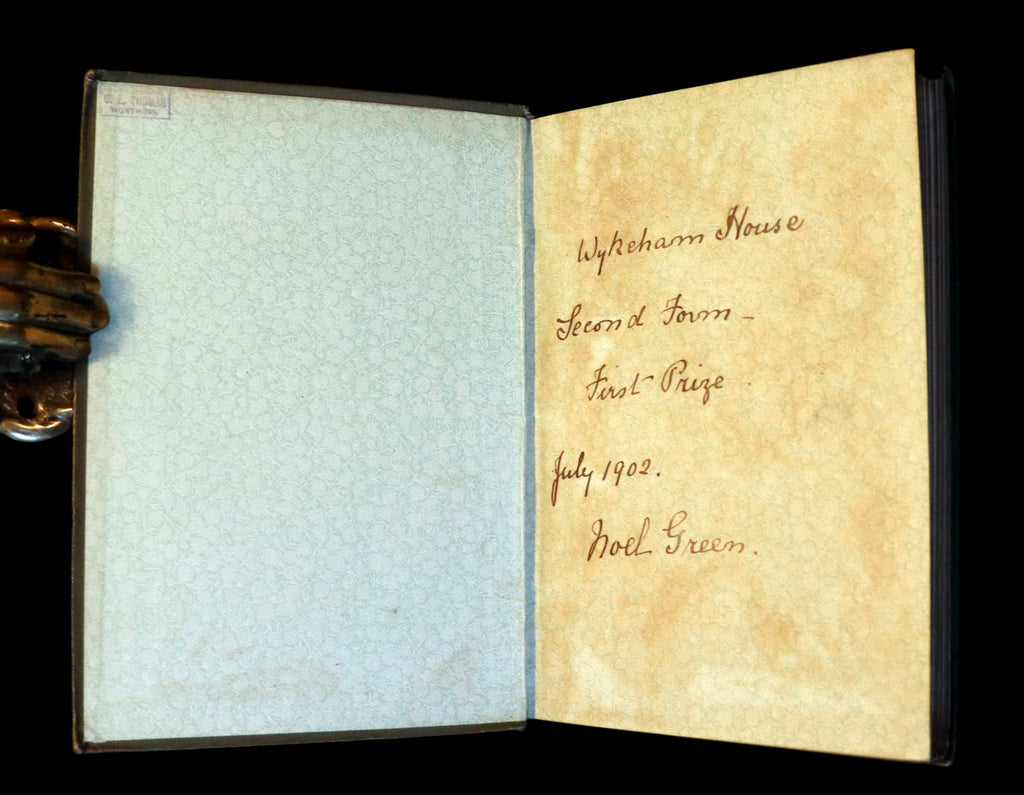 THOMAS
WORTHING
Wykeham House
Second Form -
First Prize
July 1902.
Noel Green.